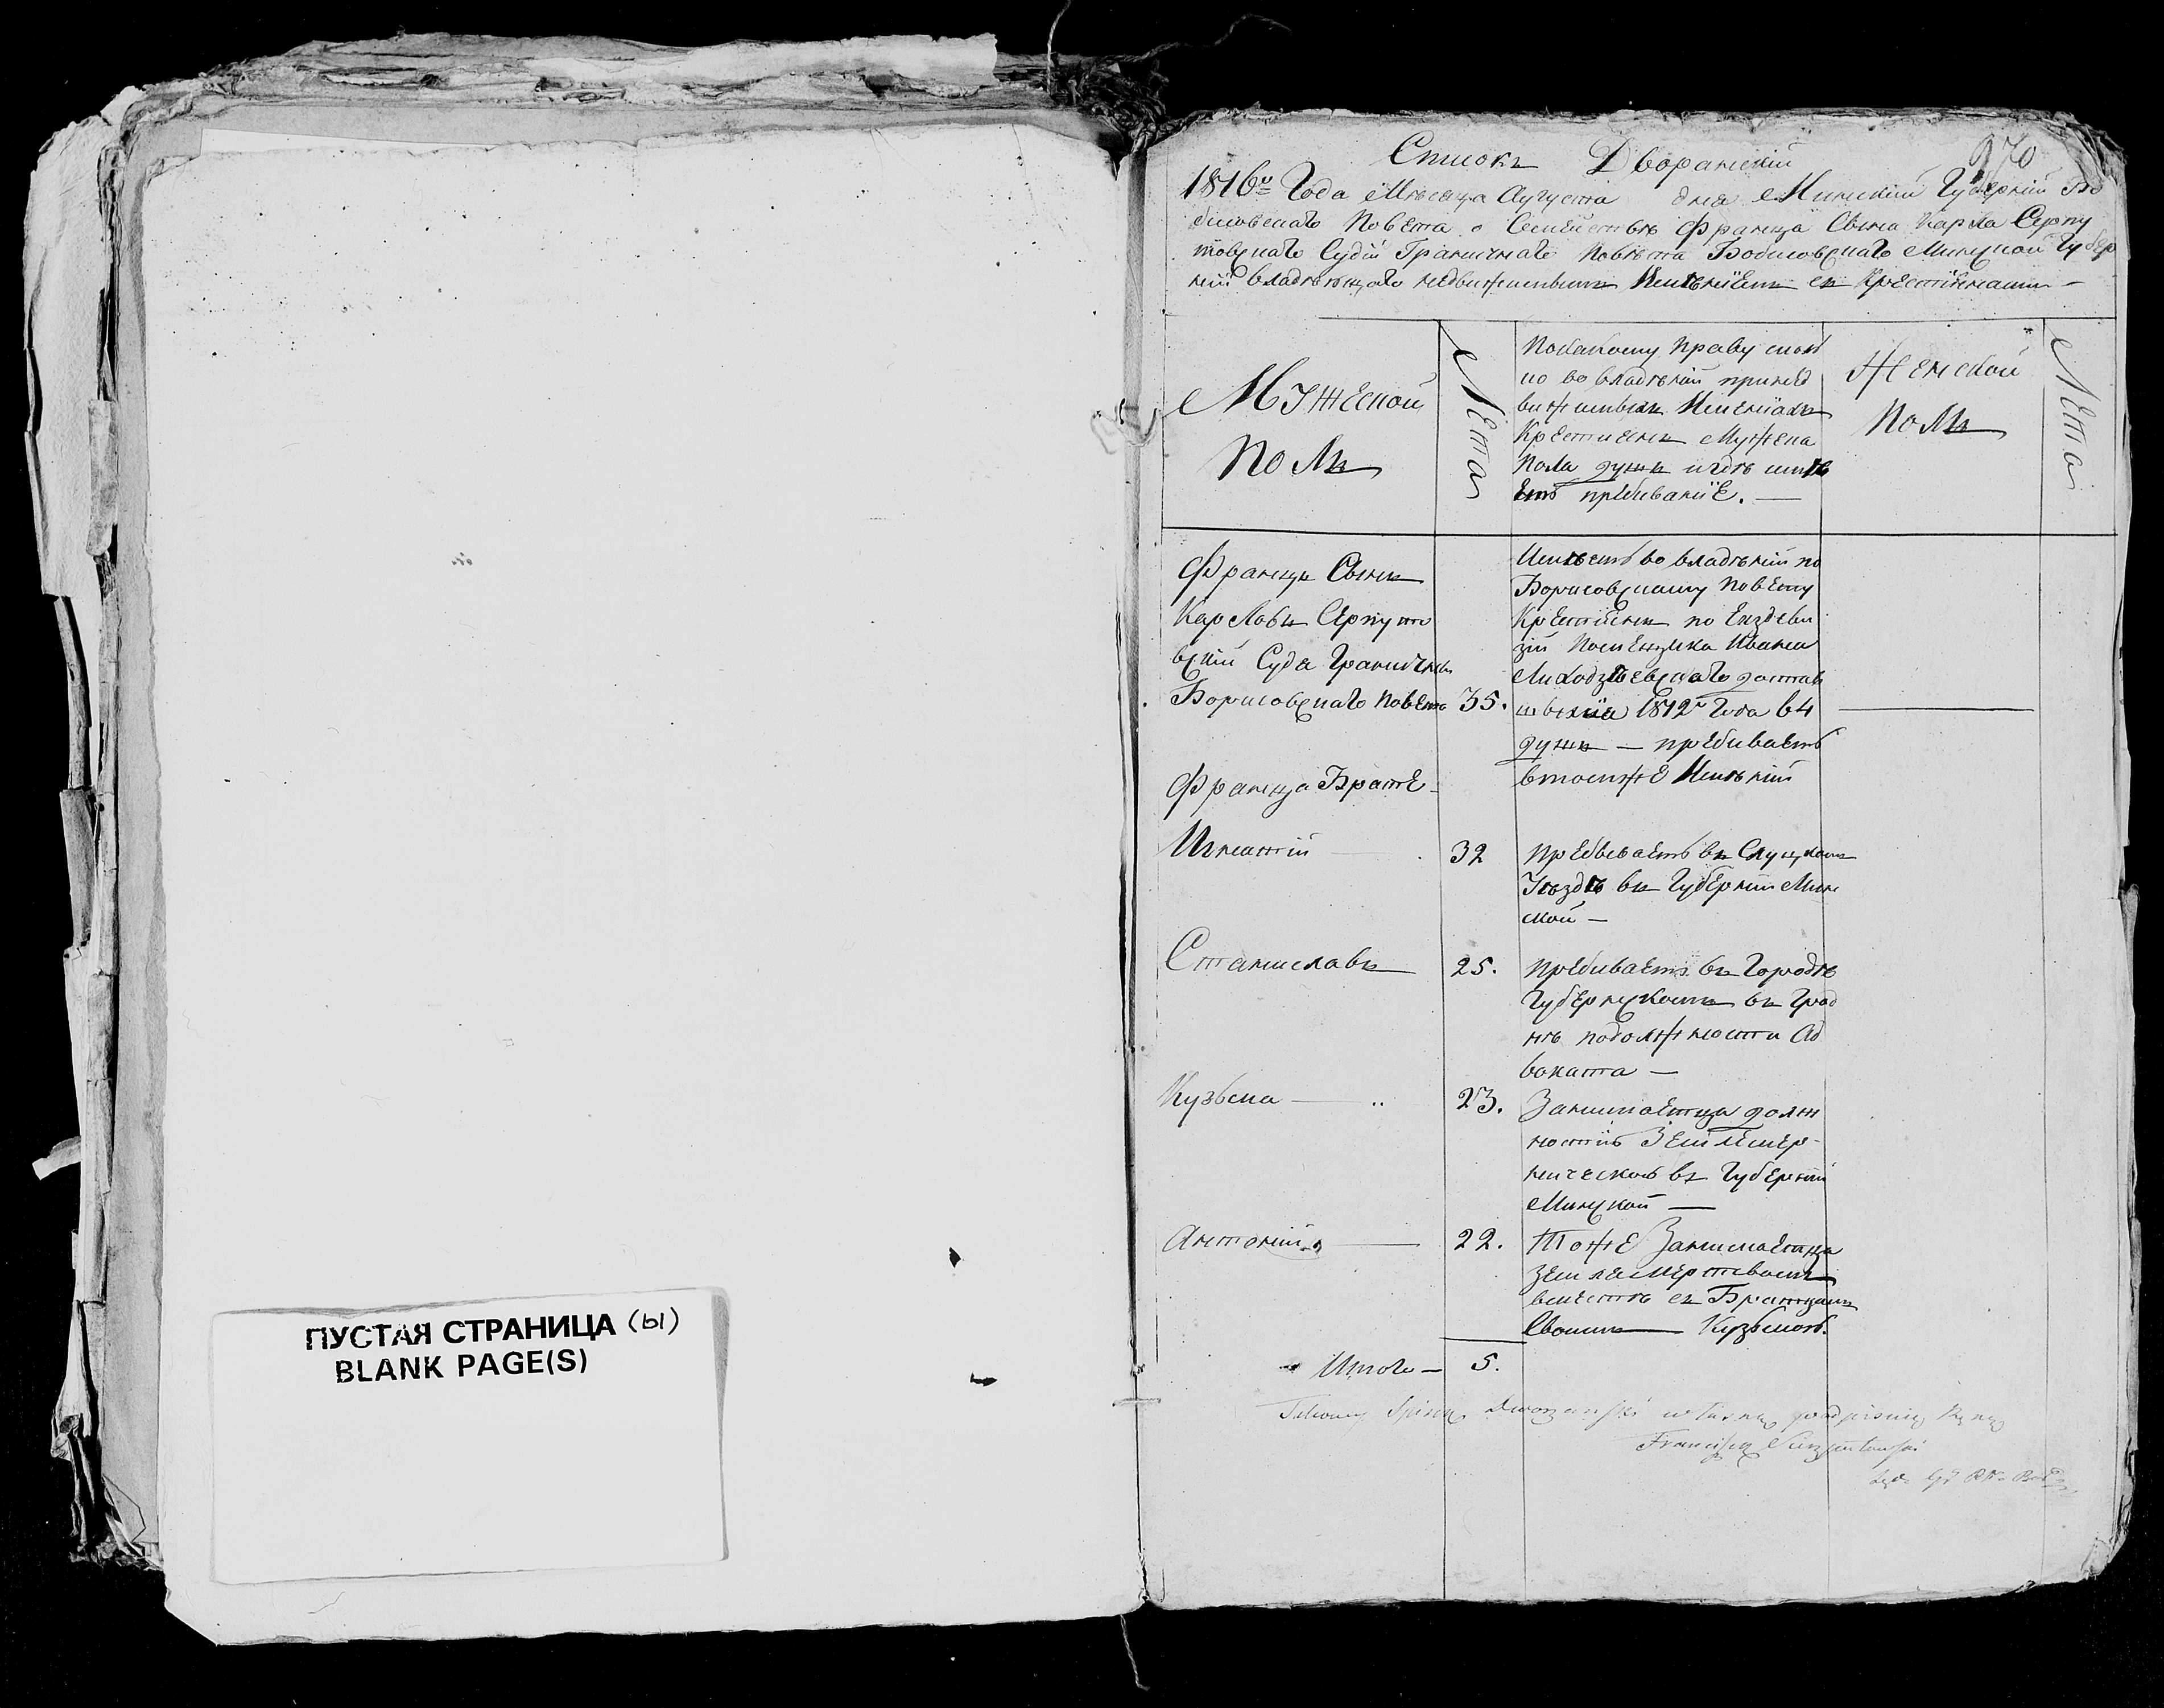 ПУСТАЯ СТРАНИЦА (ы)
BLANK PAGE(S)
970
Списокъ Дворанскій
1816го Года Мѣсеца Аугуста дня Минскій Губерній Бо
рисовскаго Повѣта о Семействѣ Франца Сына Карла Серпу
товскаго Судїй Граничнаго Повѣета Борисовскаго Минской Губер
ній владѣющаго недвижимымъ Имѣніемъ съ Крестїянами —
Мужеской
Полъ
Лѣта
Покакому Праву сколь
ко во владѣній принед
вижимыхъ Имѣнїахъ
Крестиенъ Мужека
Пола душъ и гдѣ имѣ
етъ пребиванїе. —
Женской
Полъ
Лета
Францъ Сынъ
Карловъ Серпуто
вскій Суда Граничнаго
Борисовскаго Повета
35.
Имѣетъ во владѣній по
Борисовскаму Повету
Крестїенъ по Ексдеви
зій Помещика Ивана
шведшїа 1812го Года 64
душъ — пребиваетъ
втомже Имѣній
Франца Брате
Игнатій —
32
Пребываетъ въ Слуцкомъ
Уѣздѣ въ Губерніи Мин
ской —
Станиславъ
25.
Пребиваетъ въ Городѣ
Губернскомъ въ Грод
нѣ подолжности Ад
воката —
Кузьма — ..
23.
Занимаетца долж
ностїю Землемер-
ническою въ Губерній
Минской —
Антоній —
22.
Тоже Занимаетца
землемерствомъ
вместѣ съ Братомъ
Своимъ — Кузьмою.
Итого —
5.
Takowy Spisek Dworzanski własną podpisuię Ręką
Franciszek Sierputowski